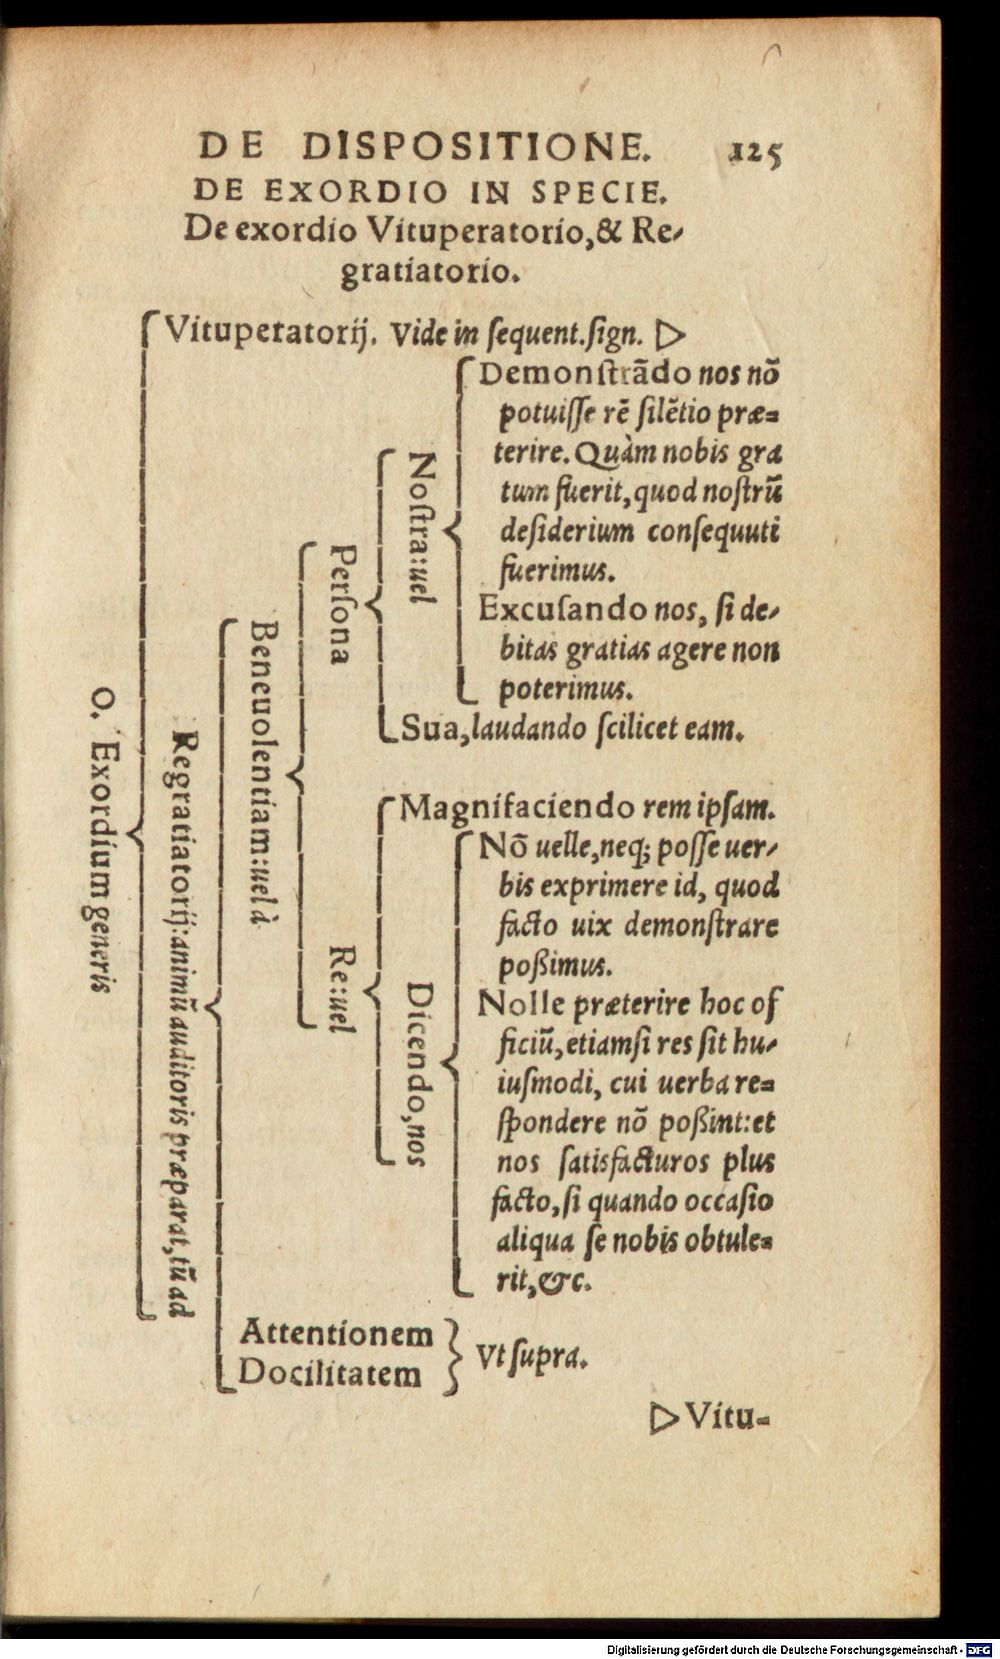 DE DISPOSITIONE. 125
DE EXORDIO IN SPECIE.
De exordio Vituperatorio,& Re-
gratiatorio.
O. Exordium generis
Vituperatorij. Vide in sequent.sign. ▷
Regratiatorij:animū auditoris præparat,tū ad
Beneuolentiam:uel à
Persona
Nostra:uel
Demonstrādo nos nō
potuisse rē silētio præ-
terire. Quàm nobis gra
tum fuerit,quod nostrū
desiderium consequuti
fuerimus.
Excusando nos, si de-
bitas gratias agere non
poterimus.
Sua,laudando scilicet eam.
Re:uel
Magnifaciendo rem ipsam.
Dicendo,nos
Nō uelle,neq; posse uer-
bis exprimere id, quod
facto uix demonstrare
poßimus.
Nolle præterire hoc of
ficiū,etiamsi res sit hu-
iusmodi, cui uerba re-
spondere nō poßint:et
nos satisfacturos plus
facto,si quando occasio
aliqua se nobis obtule-
rit,&c.
Attentionem
Docilitatem
Vt supra.
▷Vitu-
Digitalisierung gefördert durch die Deutsche Forschungsgemeinschaft - DFG